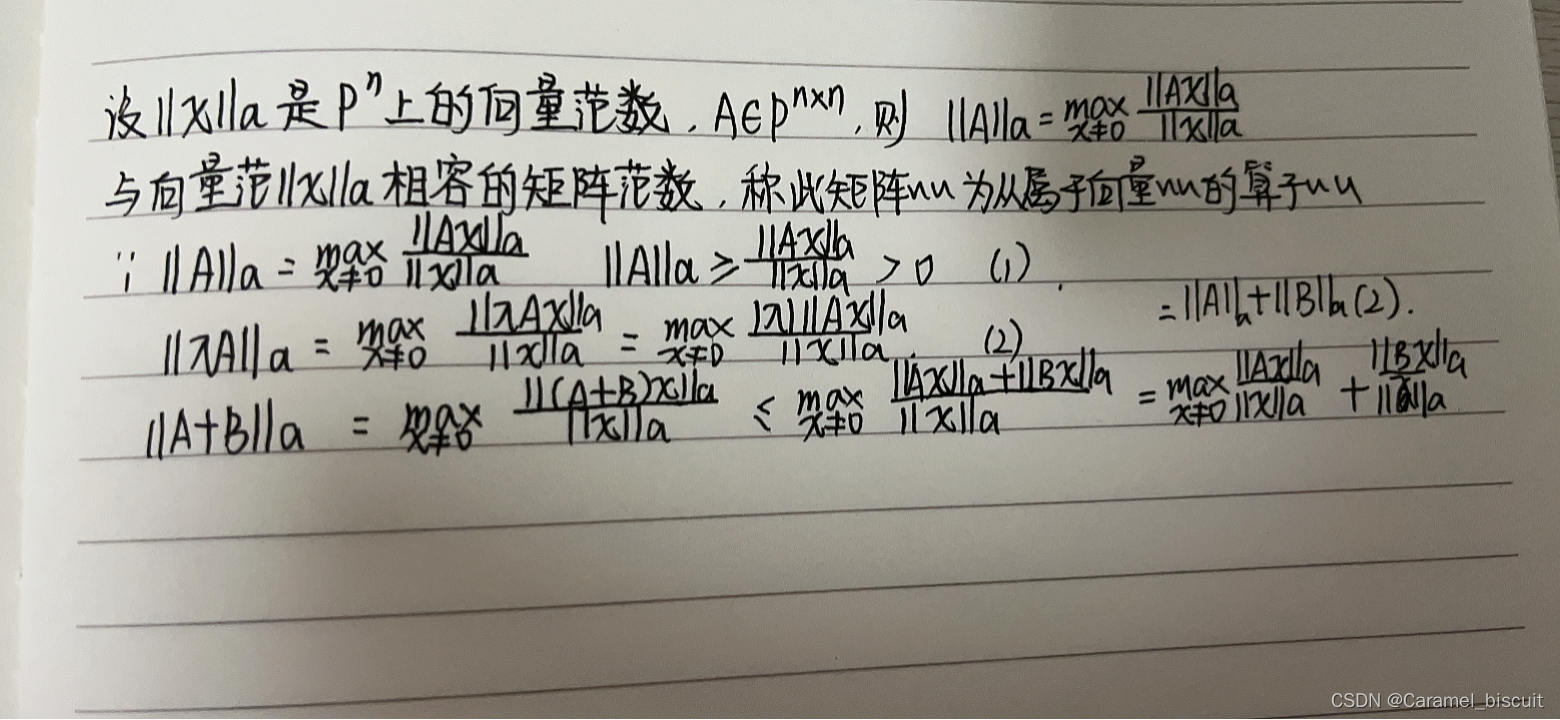 设||x||a是pⁿ上的向量范数,A∈pⁿˣⁿ,则 ||A||a = max x≠0 ||Ax||a / ||x||a
与向量范||x||a相容的矩阵范数,称此矩阵nu为从属于向量nu的算子nu
∵ ||A||a = max x≠0 ||Ax||a / ||x||a ||A||a ≥ ||Ax||a / ||x||a > 0 (1).
||λA||a = max x≠0 ||λAx||a / ||x||a = max x≠0 |λ| ||Ax||a / ||x||a. (2)
||A+B||a = max x≠0 ||(A+B)x||a / ||x||a ≤ max x≠0 ||Ax||a+||Bx||a / ||x||a = max x≠0 ||Ax||a / ||x||a + ||Bx||a / ||x||a
= ||A||a+||B||a (2).
CSDN @Caramel_biscuit